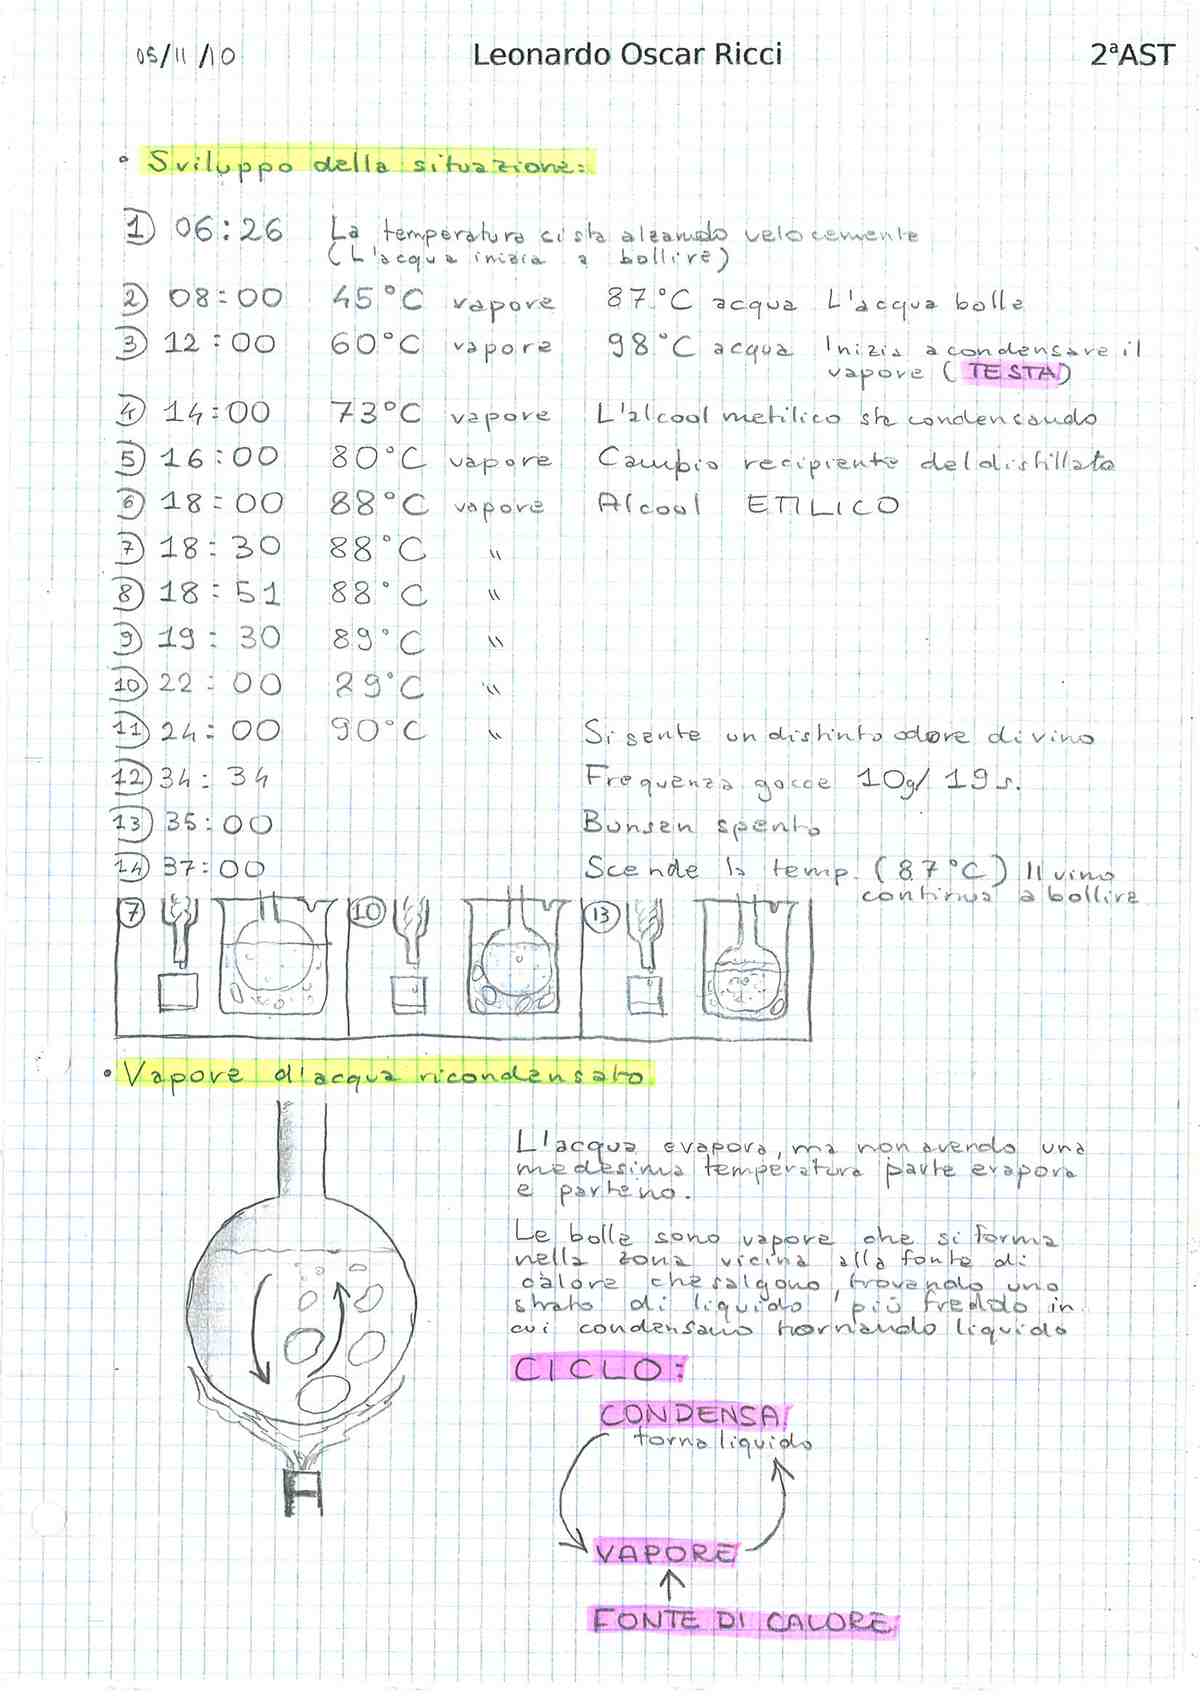 05/11/10 Leonardo Oscar Ricci 2ªAST
• Sviluppo della situazione:
1 06:26 La temperatura ci sta alzando velocemente
(L'acqua inizia a bollire)
2 08:00 45°C vapore 87°C acqua L'acqua bolle
3 12:00 60°C vapore 98°C acqua Inizia a condensare il
vapore (TESTA)
4 14:00 73°C vapore L'alcool metilico sta condensando
5 16:00 80°C vapore Cambio recipiente del distillato
6 18:00 88°C vapore Alcool ETILICO
7 18:30 88°C "
8 18:51 88°C "
9 19:30 89°C "
10 22:00 29°C "
11 24:00 90°C " Si sente un distinto odore di vino
12 34:34 Frequenza gocce 10g/19s.
13 35:00 Bunsen spento
14 37:00 Scende la temp. (87°C) Il vino
continua a bollire
7 10 13
• Vapore d'acqua ricondensato
L'acqua evapora, ma non avendo una
medesima temperatura parte evapora
e parte no.
Le bolle sono vapore che si forma
nella zona vicina alla fonte di
calore che salgono, trovando uno
strato di liquido più freddo in
cui condensano tornando liquido
CICLO:
CONDENSA
torna liquido
VAPORE
FONTE DI CALORE